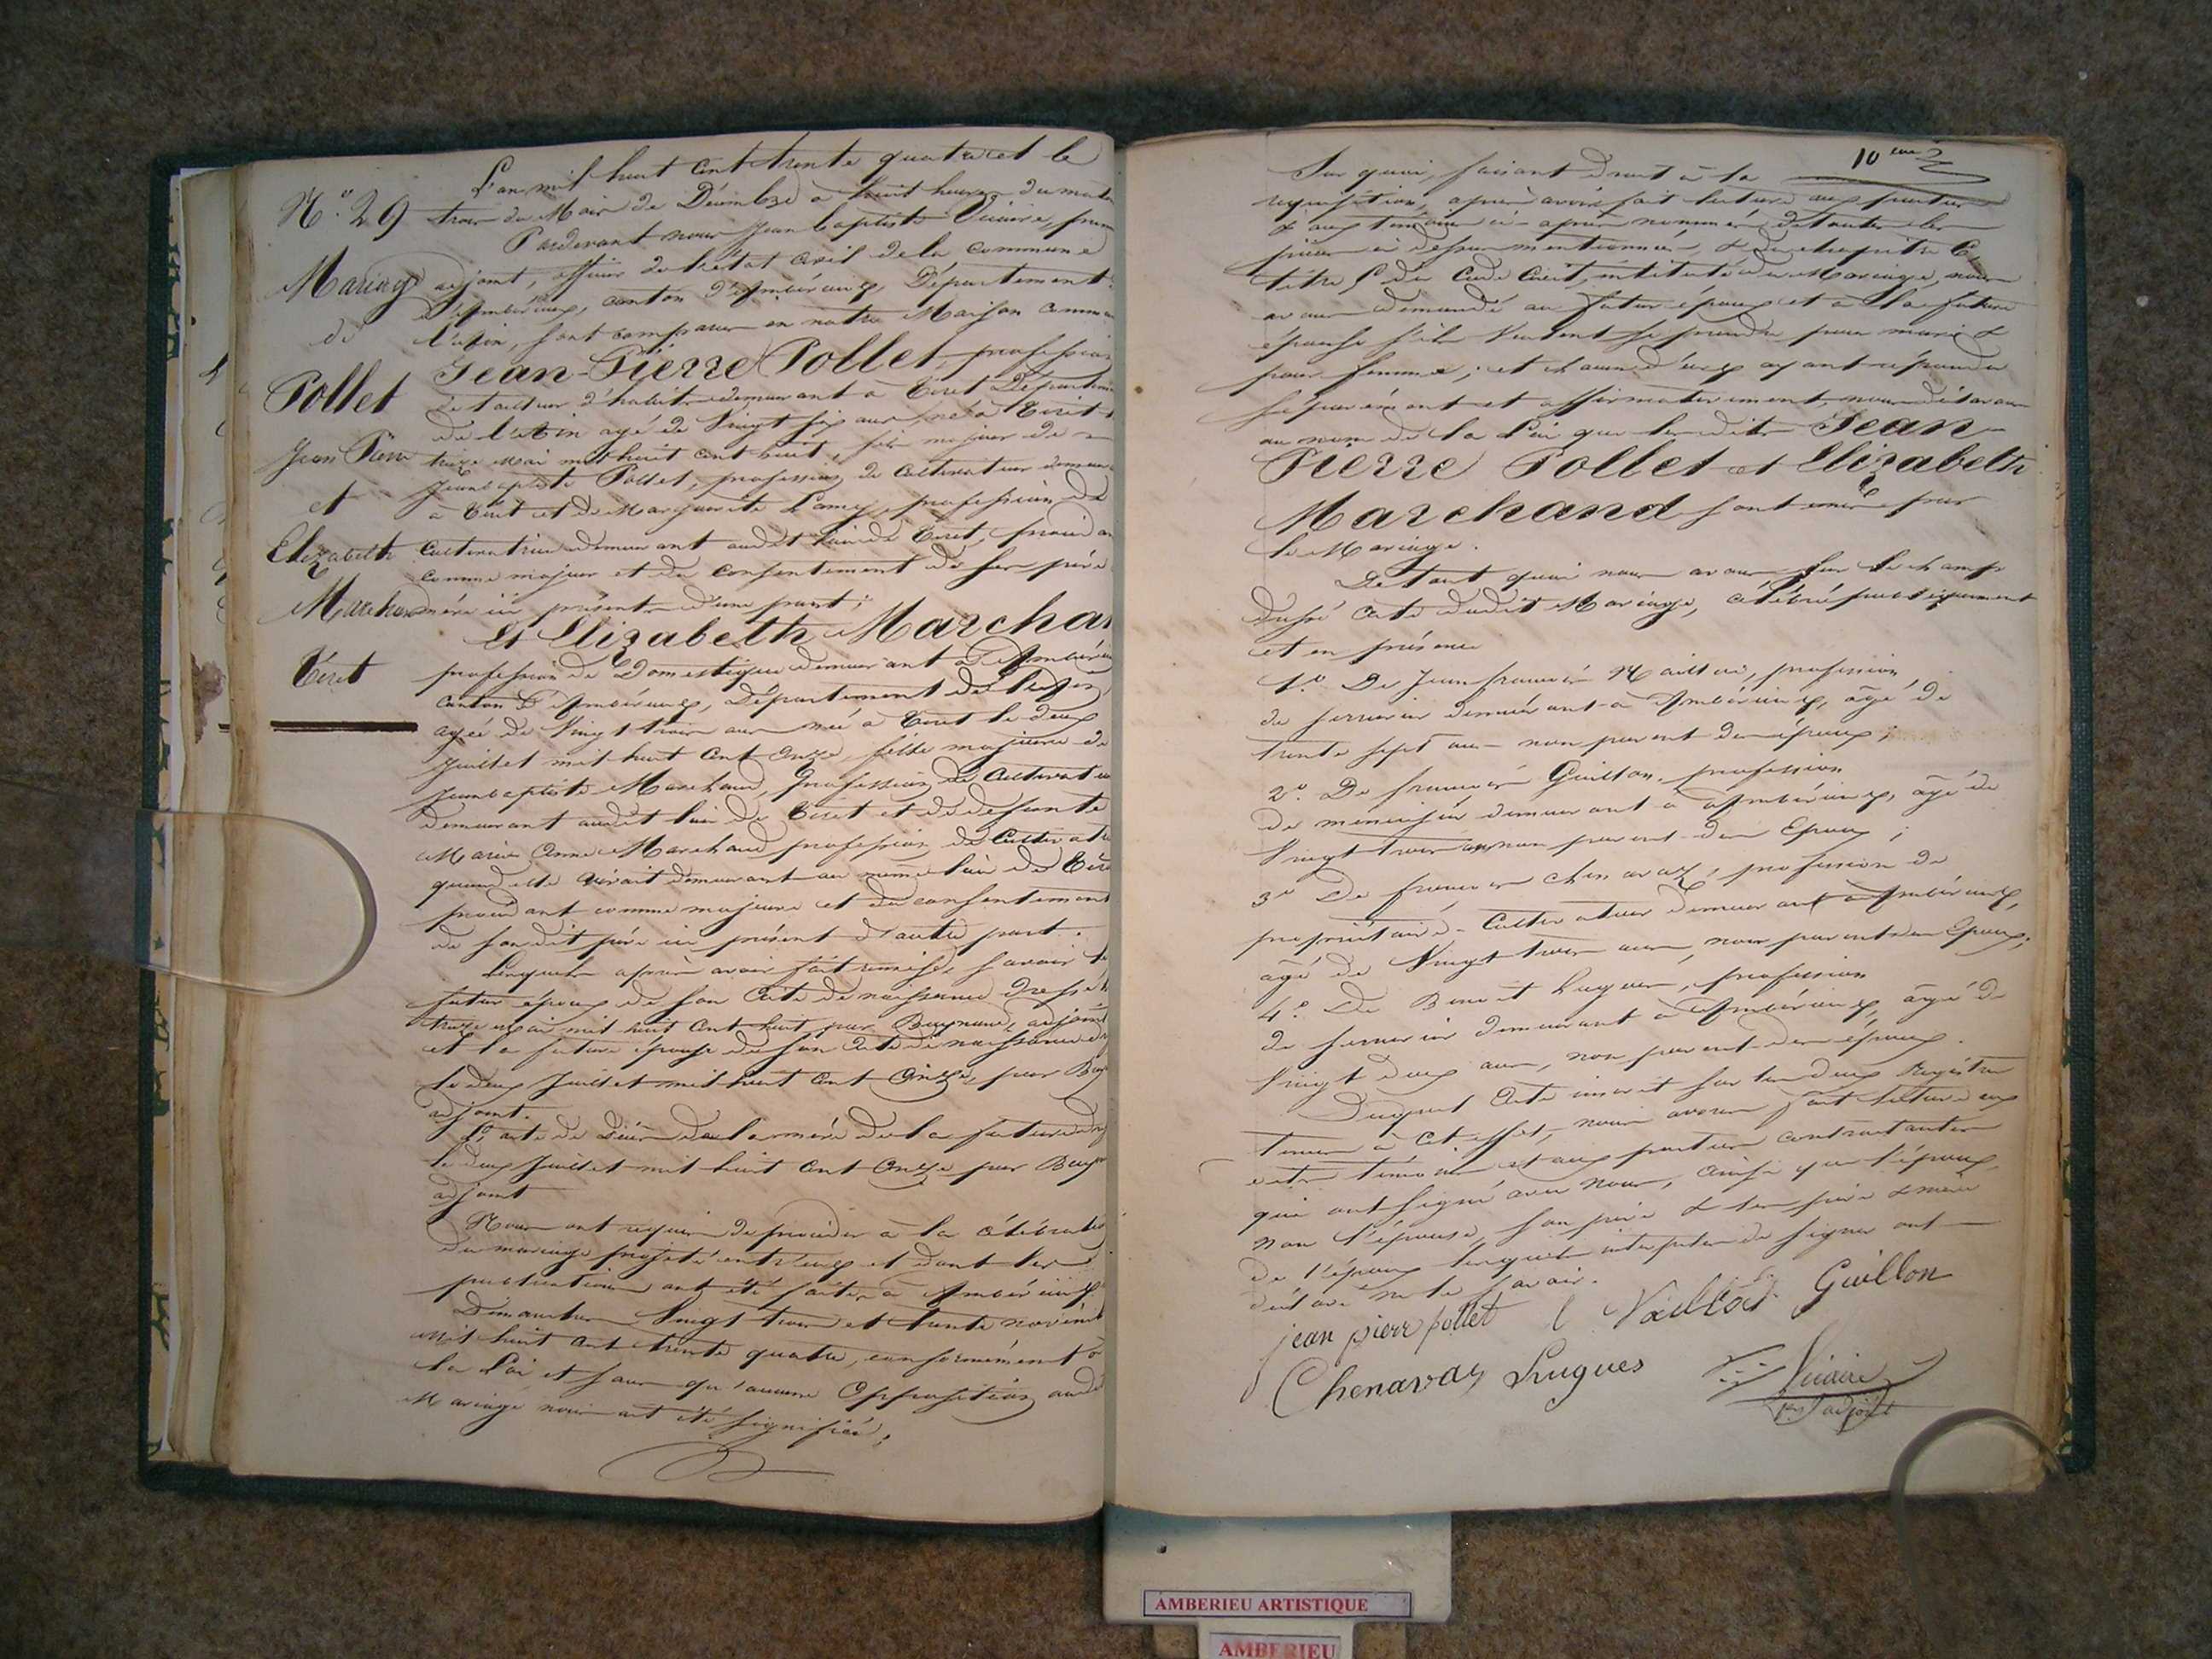 L'an mil huit cent trente quatre et le
N.º 29 trois du Mois de Décembre à huit heures du matin
Pardevant nous Jean baptiste Vicaire, prem
Mariage adjoint, officier de l'état civil de la commune
d'Ambérieux, canton d'Ambérieux, Département
de l'Ain, sont comparus en notre Maison commu
Jean-Pierre Pollet, profession
Pollet de tailleur d'habits demeurant à Départem
de l'Ain agé de Vingt six ans, né à
Jean Pierre treize Mai mil huit cent huit, fils majeur de
et Jean baptiste Pollet, profession de Cultivateur demeur
à et de Marguerite profession de
Elizabeth Cultivatrice demeurant audit lieu de procédant
comme majeur et du consentement de ses père
Marchand mère ici présents d'une part;
Et Elizabeth Marchan
profession de Domestique demeurant à Ambérieu
Canton d'Ambérieux, Département de l'Ain
agée de Vingt trois ans née à le deux
Juillet mil huit cent onze, fille majeure de
Jean baptiste Marchand, profession de Cultivateu
demeurant audit lieu de et de defunte
Marie Anne Marchand profession de Cultivatri
quand elle vivait demeurant au même lieu de
procédant comme majeure et du consentement
de son dit père ici présent d'autre part.
Lesquels après avoir fait remise, savoir le
futur epoux de son Acte de naissance dressé le
treize mai mil huit cent huit par adjoint
et la future épouse de son Acte de naissance
le deux Juillet mil huit cent Onze, par
adjoint.
L'acte de Décès de la mère de la future
le deux Juillet mil huit cent Onze par
adjoint
Nous ont requis de procéder à la célébration
du mariage projeté entr'eux et dont les
publications ont été faites à Ambérieux
Dimanches Vingt trois et trente novemb
mil huit cent trente quatre, conformément à
la Loi et sans qu'aucune Opposition audit
Mariage nous ait été signifiée;
10 eme
Sur quoi, faisant droit à la
réquisition, après avoir fait lecture aux parties
& aux témoins ci-après nommés, de toutes les
pièces ci dessus mentionnées, & du chapitre 6
titre 5 du Code Civil, intitulé du Mariage, nous
avons demandé au futur époux et à la future
épouse s'ils veulent se prendre pour mari &
pour femme; et chacun d'eux ayant répondu
séparément et affirmativement, nous déclarons
au nom de la Loi que lesdits Jean-
Pierre Pollet et Elizabeth
Marchand sont unis par
le Mariage.
De tout quoi nous avons, sur le champ
dressé acte dudit Mariage, célébré publiquement
et en présence
1.º De Jean francois profession
de serrurier demeurant à Ambérieux, âgé de
trente sept ans non parent des époux;
2.º De francois Guillon, profession
de menuisier demeurant à Ambérieux, âgé de
Vingt trois ans non parent des Epoux;
3.º De francois chenavaz, profession de
propriétaire-Cultivateur demeurant à Ambérieux,
agé de Vingt trois ans, non parent des Epoux.
4.º De Benoit hugues, profession
de serrurier demeurant à Ambérieux, âgé de
Vingt deux ans, non parent des époux.
Duquel Acte inscrit sur les deux Registres
tenus à cet effet, nous avons fait lecture aux
témoins et aux parties contractantes
qui ont signé avec nous, ainsi que l'époux,
non l'épouse, son père & les père & mère
de l'époux lesquels interpellés de signer ont
déclaré ne le savoir.
jean pierre pollet Guillon
Chenavaz hugues Vicaire
1er adjoint
AMBERIEU ARTISTIQUE
AMBERIEU